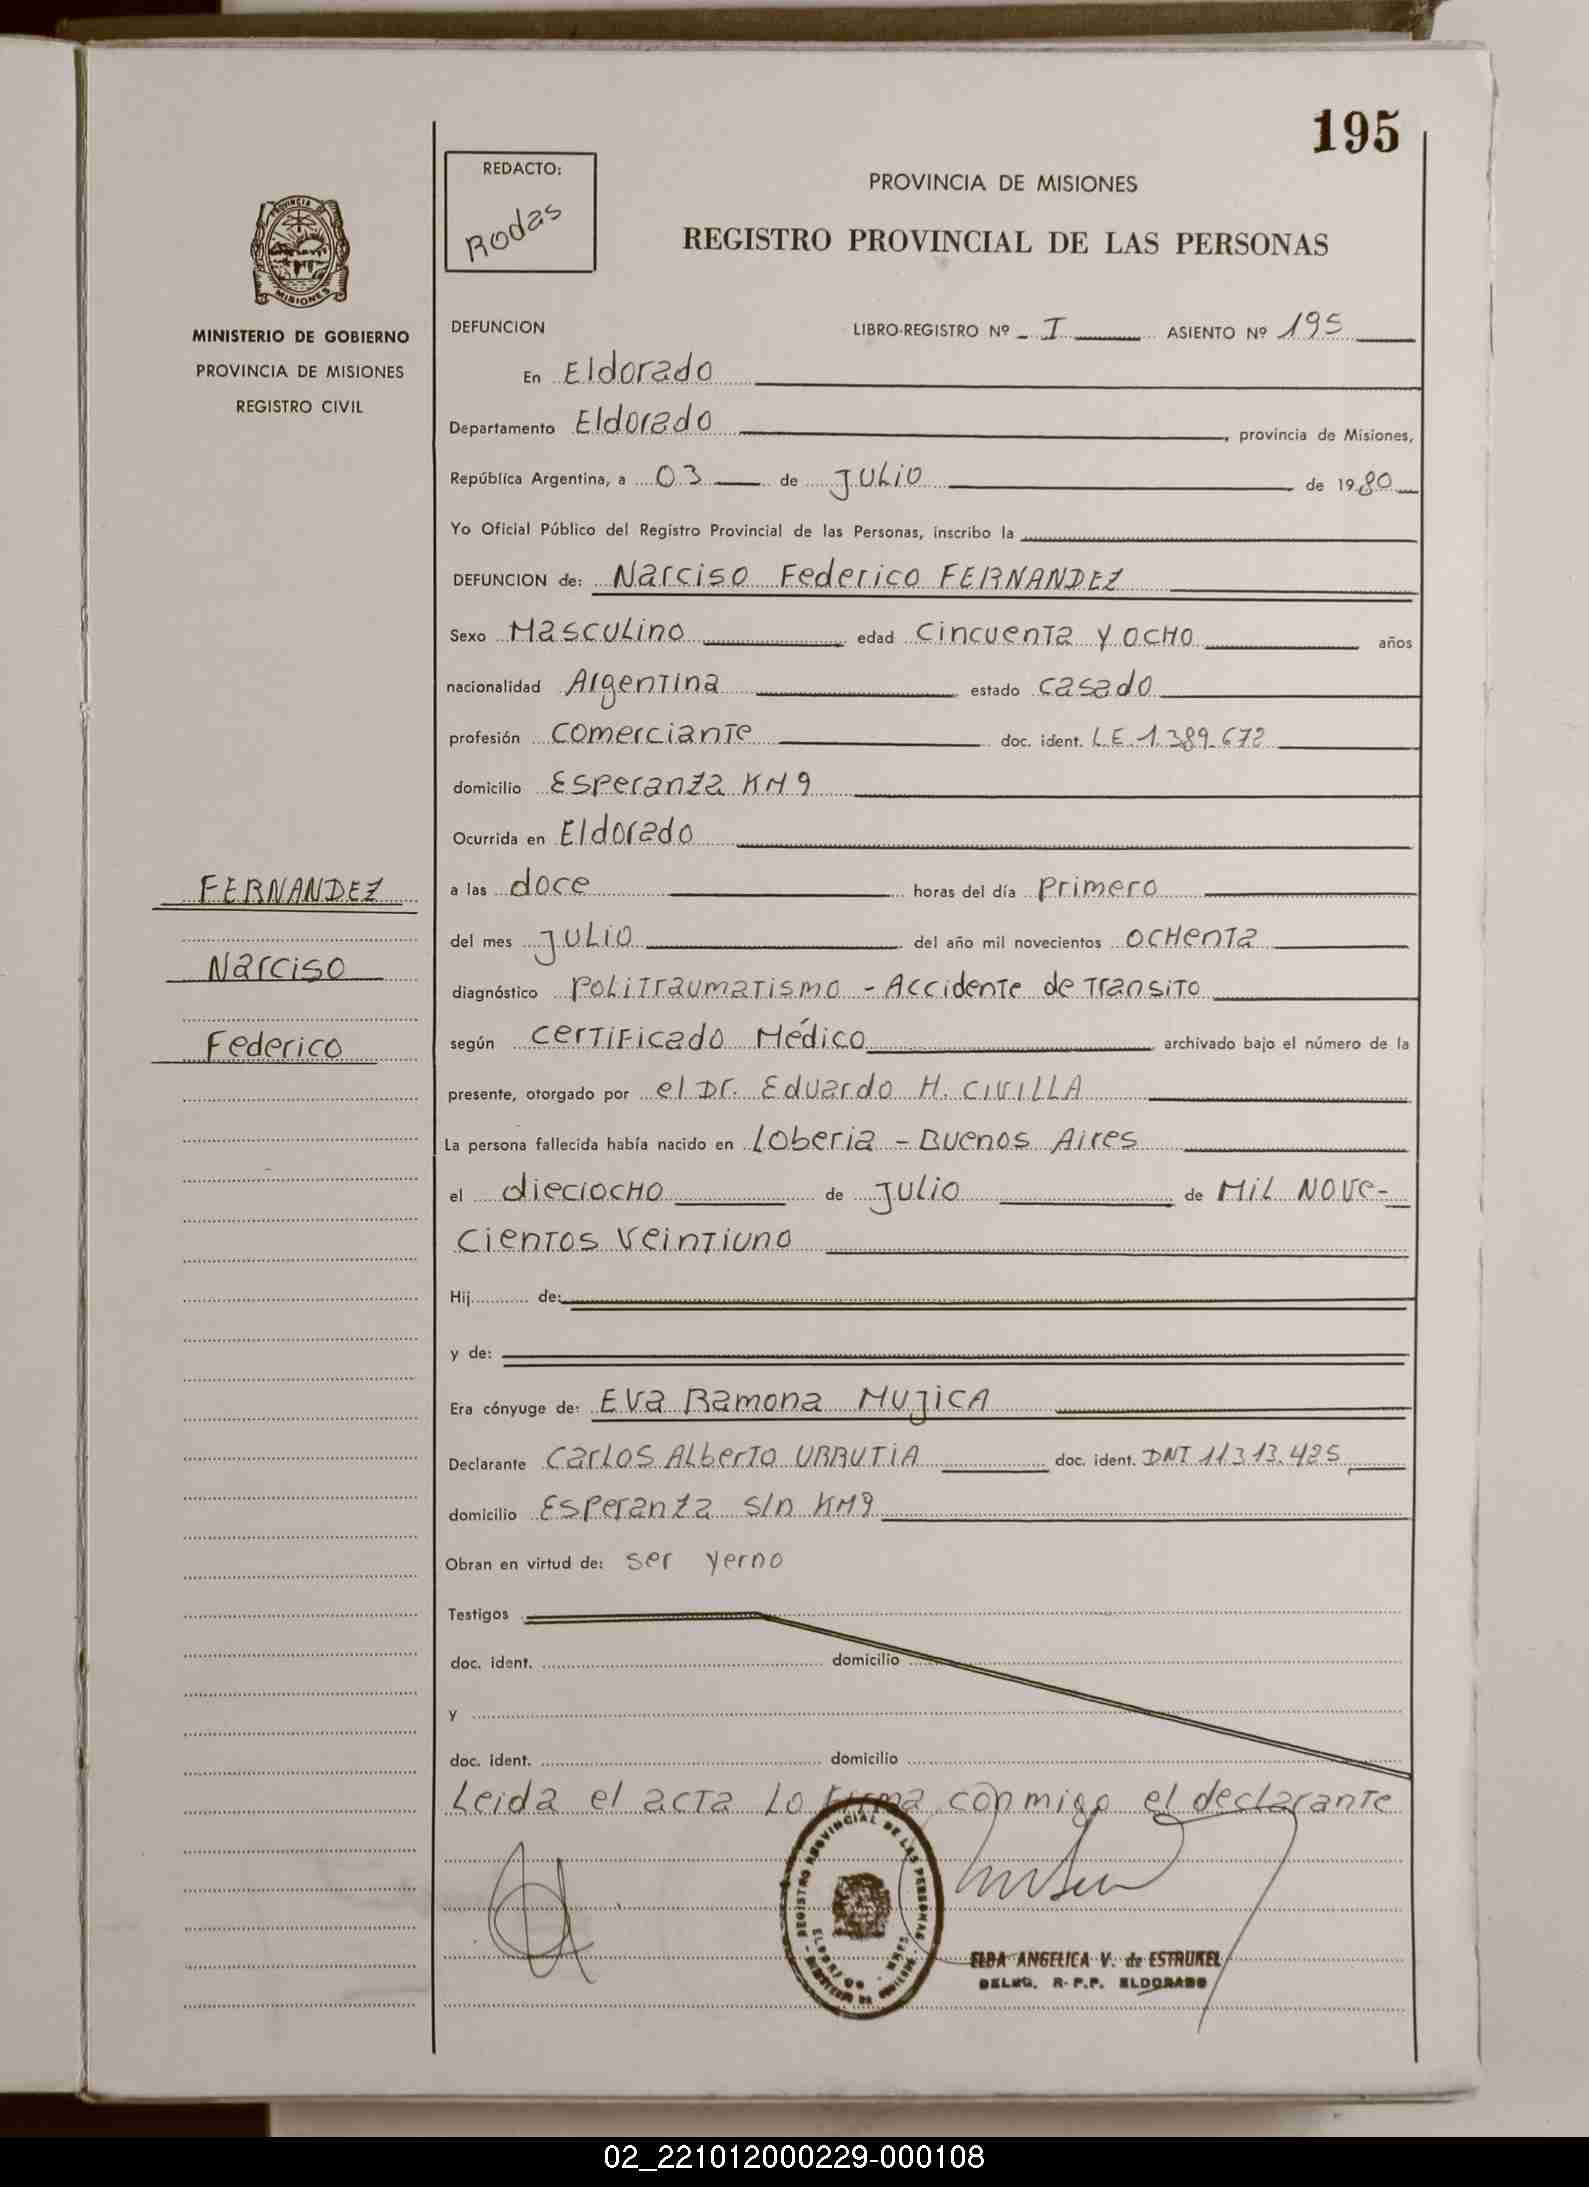 195
REDACTO:
Rodas
PROVINCIA DE MISIONES
REGISTRO PROVINCIAL DE LAS PERSONAS
MISIONES
MINISTERIO DE GOBIERNO
PROVINCIA DE MISIONES
REGISTRO CIVIL
DEFUNCION LIBRO-REGISTRO Nº I ASIENTO Nº 195
En Eldorado
Departamento Eldorado, provincia de Misiones,
República Argentina, a 03 de JULIO de 1980
Yo Oficial Público del Registro Provincial de las Personas, inscribo la
DEFUNCION de: Narciso Federico FERNANDEZ
Sexo Masculino edad cincuenta y ocho años
nacionalidad Argentina estado casado
profesión comerciante doc. ident. L.E. 1.389.672
domicilio Esperanza KM 9
Ocurrida en Eldorado
FERNANDEZ
Narciso
Federico
a las doce horas del día primero
del mes JULIO del año mil novecientos ochenta
diagnóstico politraumatismo - Accidente de Transito
según certificado Médico archivado bajo el número de la
presente, otorgado por el Dr. Eduardo H. CIVILLA
La persona fallecida había nacido en Loberia - Buenos Aires
el dieciocho de JULIO de Mil nove-
cientos veintiuno
Hij de:
y de:
Era cónyuge de: Eva Ramona MUJICA
Declarante Carlos Alberto URRUTIA doc. ident. DNI 11.313.425
domicilio Esperanza s/n KM9
Obran en virtud de: ser yerno
Testigos
doc. ident. domicilio
y
doc. ident. domicilio
Leida el acta lo firma conmigo el declarante
REGISTRO PROVINCIAL DE LAS PERSONAS
ELDORADO
ELBA ANGELICA V. de ESTRUKEL
DELEG. R.P.P. ELDORADO
02_221012000229-000108